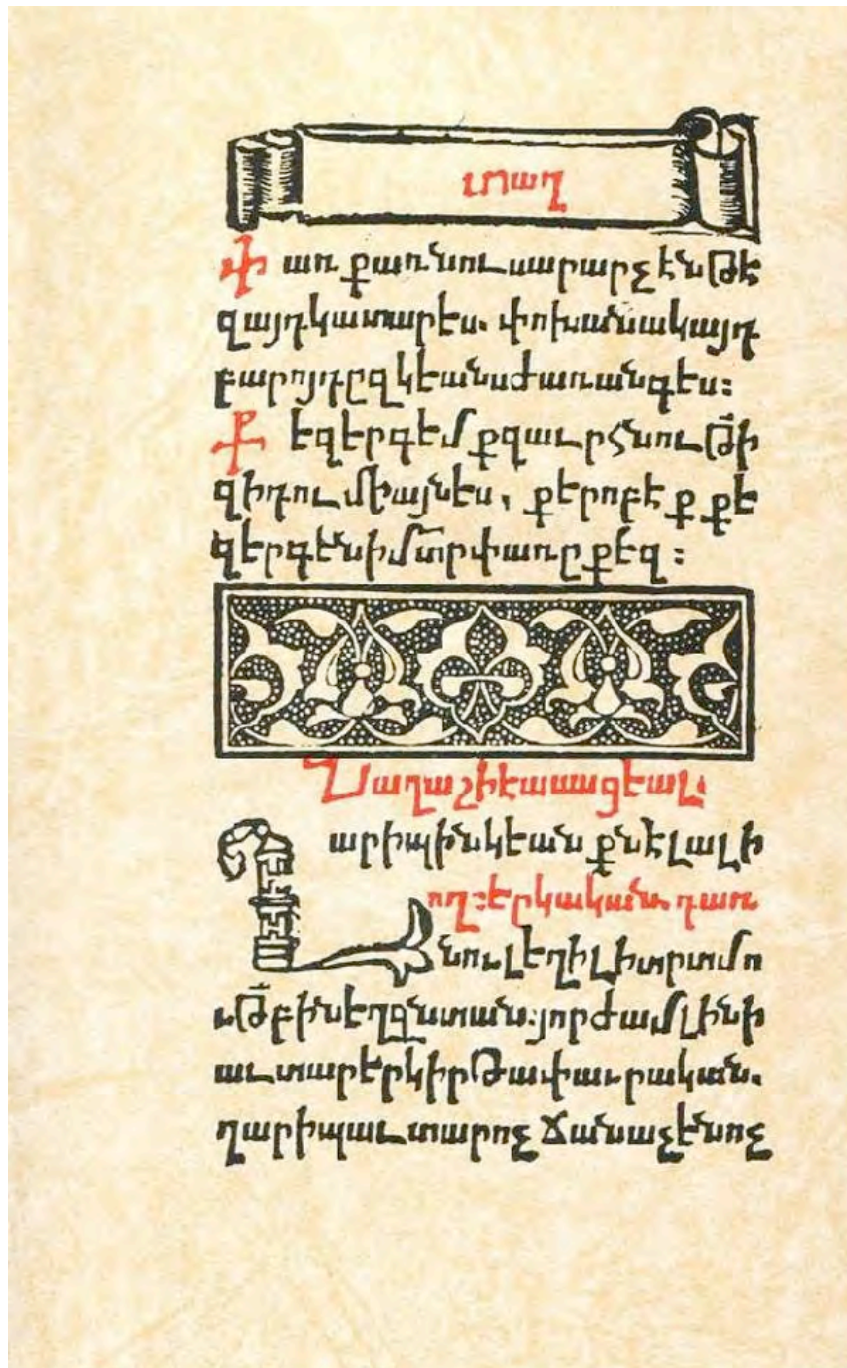 տաղ
Փ առ քառնու արարչէն թէ
զայդ կատարես. փոխանակ այդ
բարոյդ ըզկեանս ժառանգես:
Ք եզ երգեմք զաւրհնութի
զի դու միայն ես, քերոբէք քե
զ երգեն իմ տր փառք քեզ:
Մաղաշիէ ասացեալ:
արիպին կեանքն է լալի
ող: երկական. դառ
նու լեղի լի տրտմո
ւթի բին եղզնտան: յորժամ լինի
աւտար երկիր թափաւրական.
ղարիպ աւտար ոչ ճանաչեն ոչ